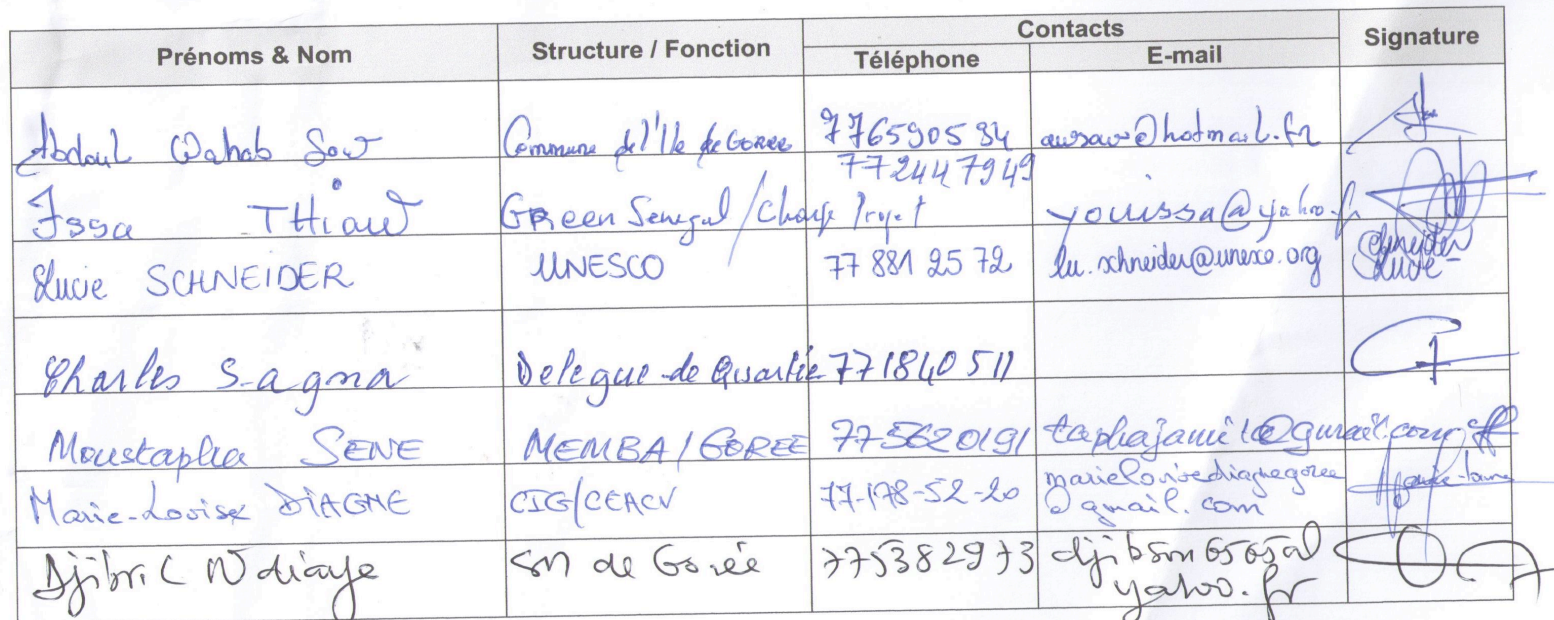 Prénoms & Nom Structure / Fonction Contacts Signature
Téléphone E-mail
Abdoul Wahab Sow Commune de l'Ile de GOREE 776590594 awsaw@hotmail.fr
772447949
Issa THIAW GREEN Senegal / Charge Projet youissa@yahoo.fr
Lucie SCHNEIDER UNESCO 77 881 25 72 lu.schneider@unesco.org Schneider Lucie
Charles Sagna Delegue de Quartie 771840511
Moustapha SENE MEMBA / GOREE 775620191 taphajamil@gmail.com
Marie-Louise DIAGNE CIG/CEACV 77-178-52-20 marielouisediagnegoree
@gmail.com
Djibril Ndiaye SM de Gorée 775382973
yahoo.fr